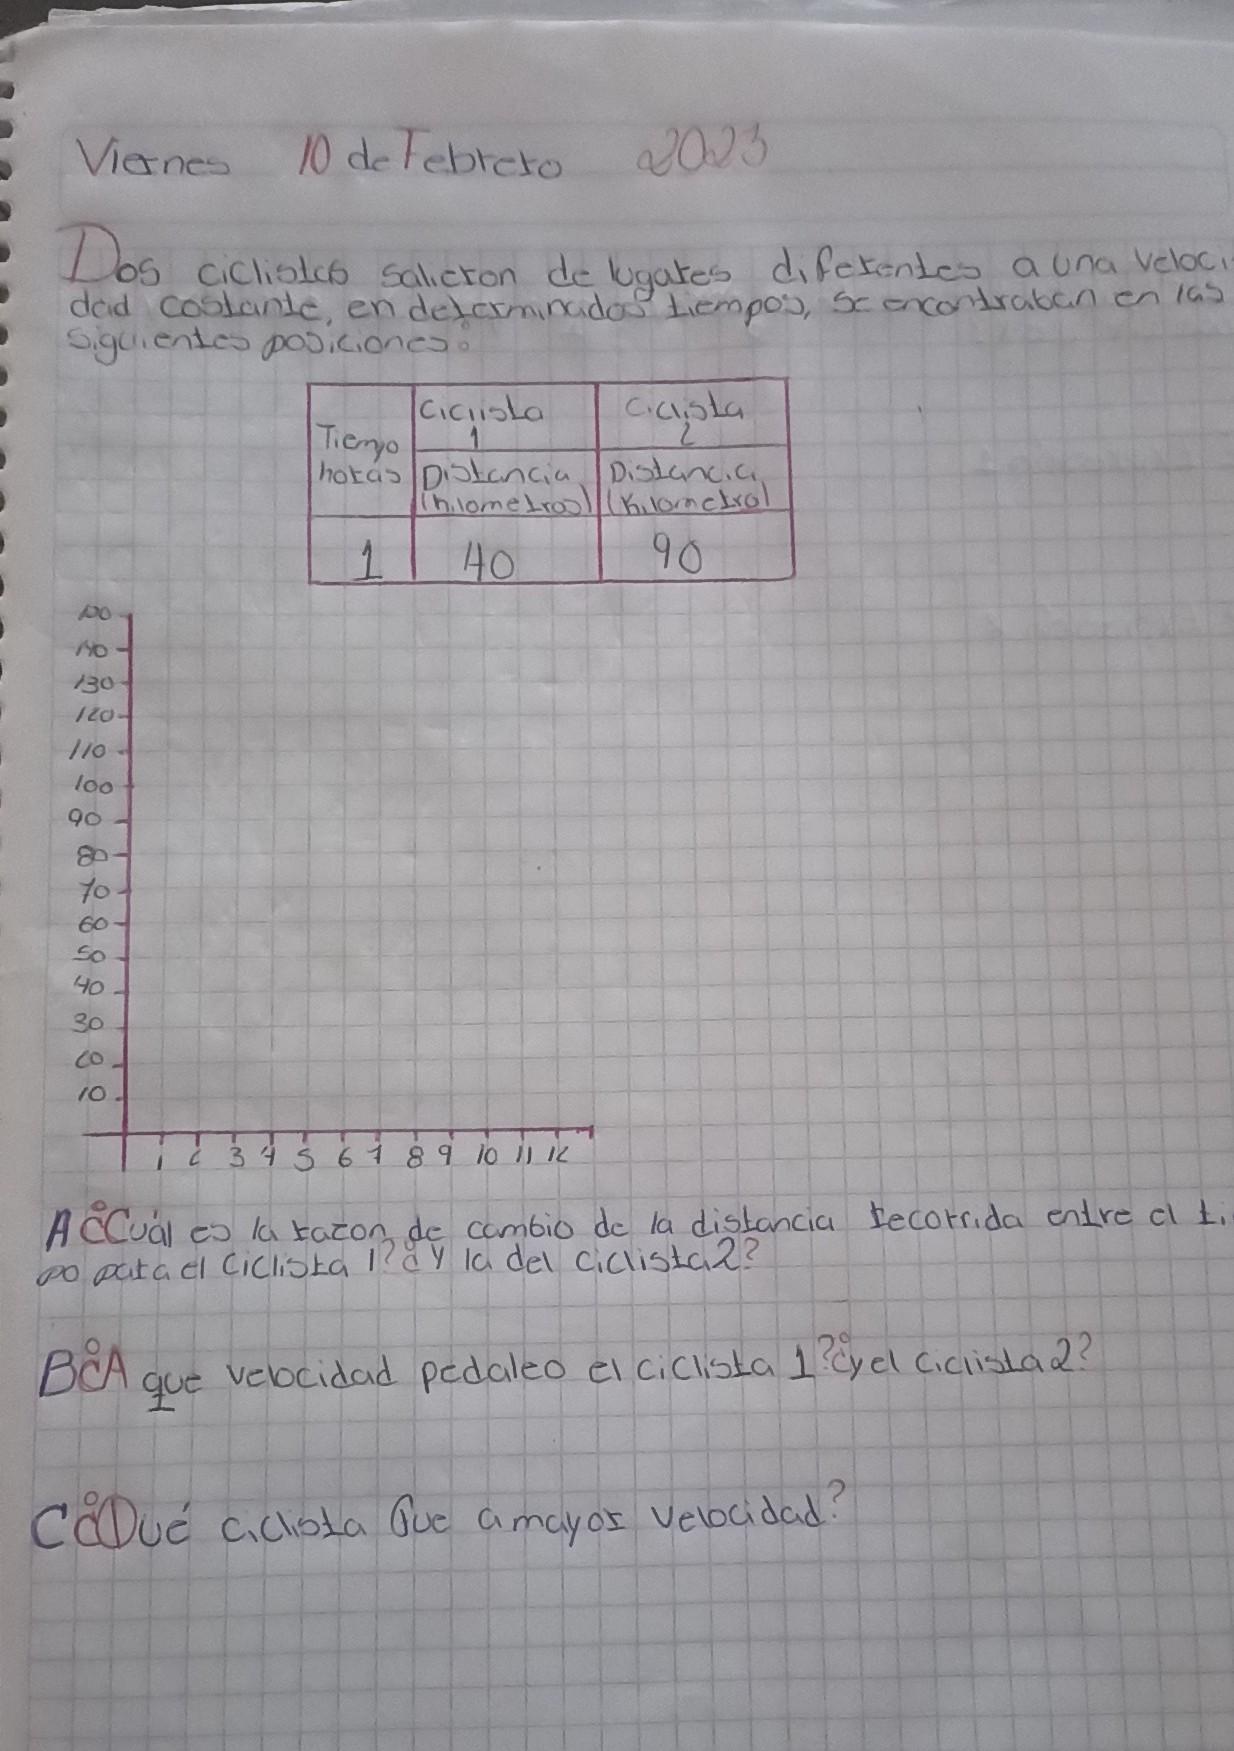 Viernes 10 de Febrero 2023
Dos ciclistas salieron de lugares diferentes a una veloci
dad costante, en determinados tiempos, se encontraban en las
siguientes posiciones.
Ciclista 1 Ciclista 2
Tiempo horas Distancia (kilometros) Distancia (kilometro)
1 40 90
140
130
120
110
100
90
80
70
60
50
40
30
20
10
1 2 3 4 5 6 7 8 9 10 11 12
A ¿Cuál es la razon de cambio de la distancia recorrida entre el ti
po para el ciclista 1? ¿Y la del ciclista 2?
B ¿A que velocidad pedaleo el ciclista 1? ¿y el ciclista 2?
C ¿Qué ciclista fue a mayor velocidad?